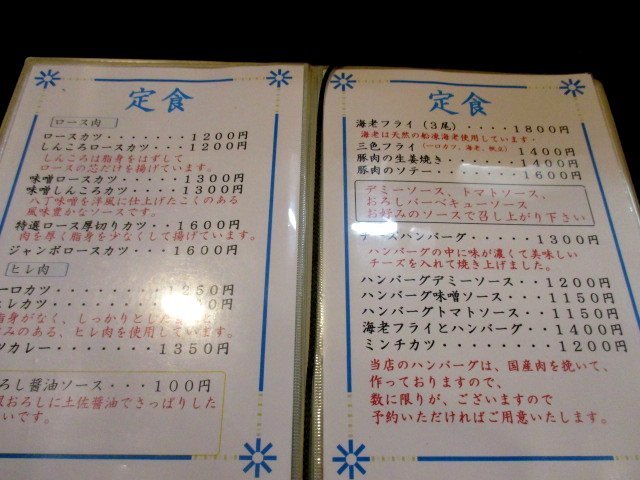 定食
ロース肉
ロースカツ・・・・・・・1200円
しんころロースカツ・・・1200円
しんころは脂身をはずして
ロースの芯だけを揚げています。
味噌ロースカツ・・・・・1300円
味噌しんころカツ・・・・1300円
八丁味噌を洋風に仕上げたこくのある
風味豊かなソースです。
特選ロース厚切りカツ・・1600円
肉を厚く脂身を少なくして揚げています。
ジャンボロースカツ・・・1600円
ヒレ肉
一口カツ・・・・・・・1250円
ヒレカツ
脂身がなく、しっかりとした
みのある、ヒレ肉を使用しています。
ツカレー・・・・・・1350円
ろし醤油ソース・・・・100円
根おろしに土佐醤油でさっぱりした
いです。
定食
海老フライ(3尾)・・・・1800円
海老は天然の船凍海老使用しています。
三色フライ(一口カツ、海老、帆立)1400円
豚肉の生姜焼き・・・・・1400円
豚肉のソテー・・・・・・1600円
デミーソース、トマトソース、
おろしバーベキューソース
お好みのソースで召し上がり下さい
チーズハンバーグ・・・・1300円
ハンバーグの中に味が濃くて美味しい
チーズを入れて焼き上げました。
ハンバーグデミーソース・・1200円
ハンバーグ味噌ソース・・・1150円
ハンバーグトマトソース・・1150円
海老フライとハンバーグ・・1400円
ミンチカツ・・・・・・・・1200円
当店のハンバーグは、国産肉を挽いて、
作っておりますので、
数に限りが、ございますので
予約いただければご用意いたします。